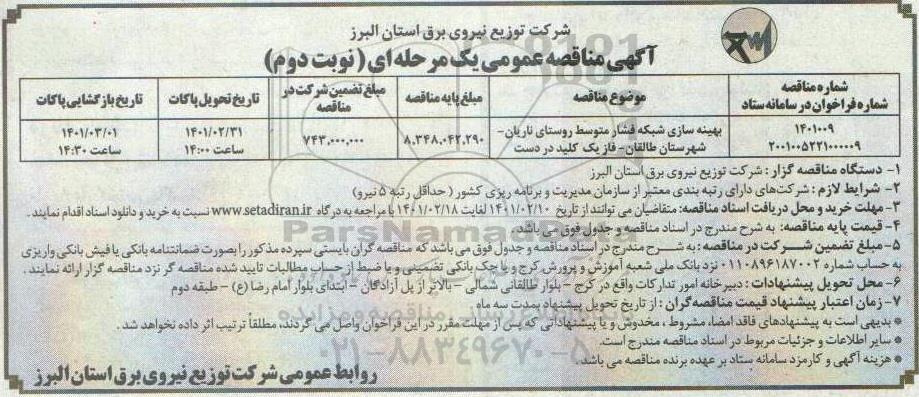 شرکت توزیع نیروی برق استان البرز
آگهی مناقصه عمومی یک مرحله ای (نوبت دوم)
شماره مناقصه
شماره فراخوان در سامانه ستاد
موضوع مناقصه
مبلغ پایه مناقصه
مبلغ تضمین شرکت در مناقصه
تاریخ تحویل پاکات
تاریخ بازگشایی پاکات
۱۴۰۱۰۰۹
۲۰۰۱۰۰۵۲۲۱۰۰۰۰۰۹
بهینه سازی شبکه فشار متوسط روستای ناریان-
شهرستان طالقان- فاز یک کلید در دست
۸,۳۴۸,۰۴۲,۲۹۰
۷۴۳,۰۰۰,۰۰۰
۱۴۰۱/۰۲/۳۱
ساعت ۱۴:۰۰
۱۴۰۱/۰۳/۰۱
ساعت ۱۴:۳۰
۱- دستگاه مناقصه گزار: شرکت توزیع نیروی برق استان البرز
۲- شرایط لازم: شرکت‌های دارای رتبه بندی معتبر از سازمان مدیریت و برنامه ریزی کشور (حداقل رتبه ۵ نیرو)
۳- مهلت خرید و محل دریافت اسناد مناقصه: متقاضیان می توانند از تاریخ ۱۴۰۱/۰۲/۱۰ لغایت ۱۴۰۱/۰۲/۱۸ با مراجعه به درگاه www.setadiran.ir نسبت به خرید و دانلود اسناد اقدام نمایند.
۴- قیمت پایه مناقصه: به شرح مندرج در اسناد مناقصه و جدول فوق می باشد.
۵- مبلغ تضمین شرکت در مناقصه: به شرح مندرج در اسناد مناقصه و جدول فوق می باشد که مناقصه گران بایستی سپرده مذکور را بصورت ضمانتنامه بانکی یا فیش بانکی واریزی
به حساب شماره ۰۱۱۰۸۹۶۱۸۷۰۰۲ نزد بانک ملی شعبه آموزش و پرورش کرج و یا چک بانکی تضمینی و یا ضبط از حساب مطالبات تایید شده مناقصه گر نزد مناقصه گزار ارائه نمایند.
۶- محل تحویل پیشنهادات: دبیرخانه امور تدارکات واقع در کرج - بلوار طالقانی شمالی - بالاتر از پل آزادگان - ابتدای بلوار امام رضا (ع) - طبقه دوم
۷- زمان اعتبار پیشنهاد قیمت مناقصه گران: از تاریخ تحویل پیشنهاد بمدت سه ماه
* بدیهی است به پیشنهادهای فاقد امضا، مشروط، مخدوش و یا پیشنهاداتی که پس از مهلت مقرر در این فراخوان واصل می گردند، مطلقاً ترتیب اثر داده نخواهد شد.
* سایر اطلاعات و جزئیات مربوط در اسناد مناقصه مندرج است.
* هزینه آگهی و کارمزد سامانه ستاد بر عهده برنده مناقصه می باشد.
روابط عمومی شرکت توزیع نیروی برق استان البرز
ParsNamad
۰۲۱-۸۸۳۴۹۶۷۰-۵